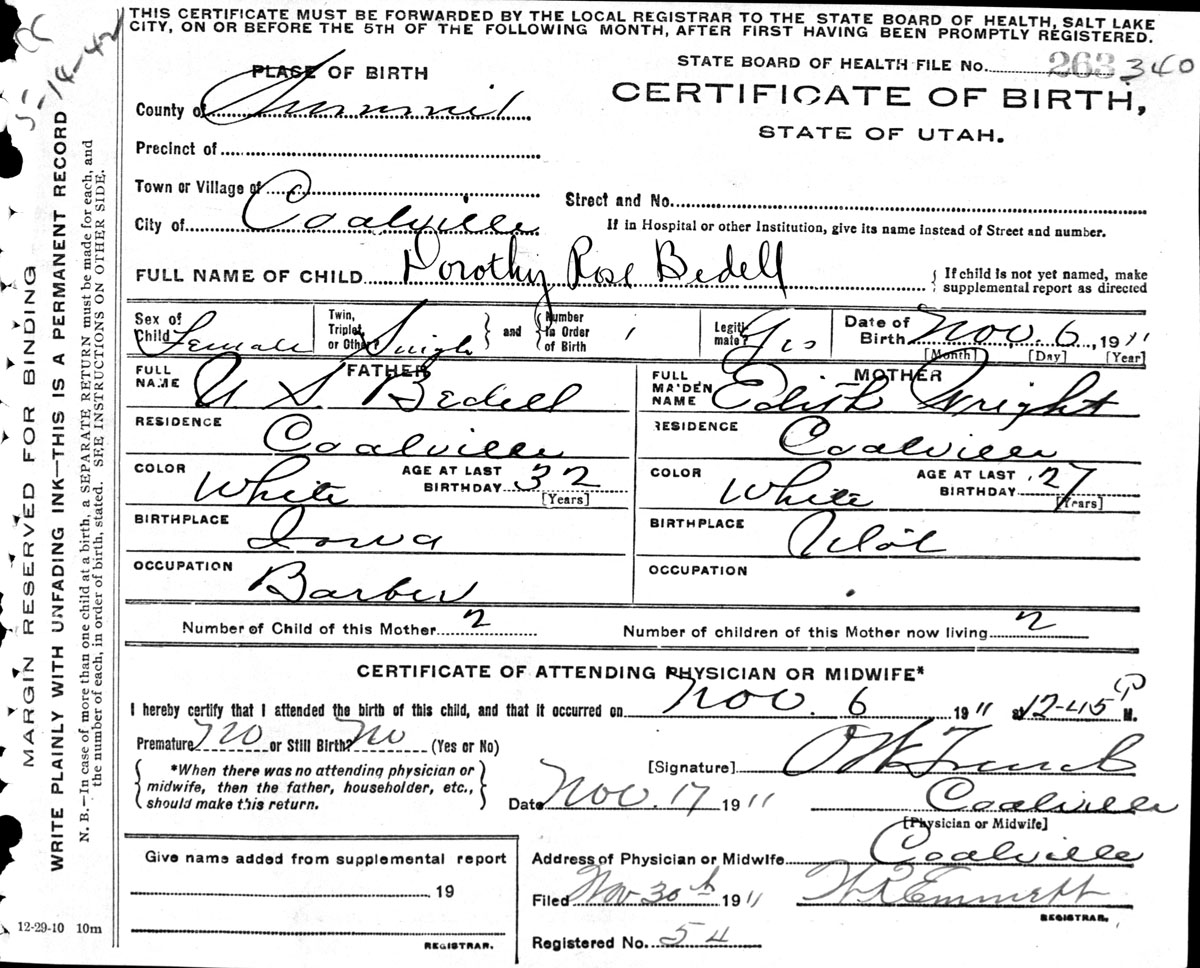 THIS CERTIFICATE MUST BE FORWARDED BY THE LOCAL REGISTRAR TO THE STATE BOARD OF HEALTH, SALT LAKE
CITY, ON OR BEFORE THE 5TH OF THE FOLLOWING MONTH, AFTER FIRST HAVING BEEN PROMPTLY REGISTERED.
PLACE OF BIRTH
STATE BOARD OF HEALTH FILE No. 263 340
County of Summit
CERTIFICATE OF BIRTH,
STATE OF UTAH.
Precinct of
Town or Village of
Street and No.
City of Coalville
If in Hospital or other Institution, give its name instead of Street and number.
FULL NAME OF CHILD Dorothy Rose Bedell { If child is not yet named, make
supplemental report as directed
Sex of Child Female Twin, Triplet, or Other Single and Number in Order of Birth 1 Legitimate? Yes Date of Birth Nov. 6, 1911
[Month] [Day] [Year]
FATHER MOTHER
FULL NAME U S Bedell FULL MAIDEN NAME Edith Wright
RESIDENCE Coalville RESIDENCE Coalville
COLOR White AGE AT LAST BIRTHDAY 32 [Years] COLOR White AGE AT LAST BIRTHDAY 27 [Years]
BIRTHPLACE Iowa BIRTHPLACE
OCCUPATION Barber OCCUPATION
Number of Child of this Mother 2 Number of children of this Mother now living 2
CERTIFICATE OF ATTENDING PHYSICIAN OR MIDWIFE*
I hereby certify that I attended the birth of this child, and that it occurred on Nov. 6 1911 at 12-45 P M.
Premature No or Still Birth? No (Yes or No)
*When there was no attending physician or
midwife, then the father, householder, etc.,
should make this return.
[Signature]
Date Nov. 17 1911 Coalville
[Physician or Midwife]
Give name added from supplemental report
19
REGISTRAR.
Address of Physician or Midwife Coalville
Filed Nov 30th 1911 Emmett
REGISTRAR.
Registered No. 54
12-29-10 10m
MARGIN RESERVED FOR BINDING
WRITE PLAINLY WITH UNFADING INK—THIS IS A PERMANENT RECORD
N. B.—In case of more than one child at a birth, a SEPARATE RETURN must be made for each, and
the number of each, in order of birth, stated. SEE INSTRUCTIONS ON OTHER SIDE.